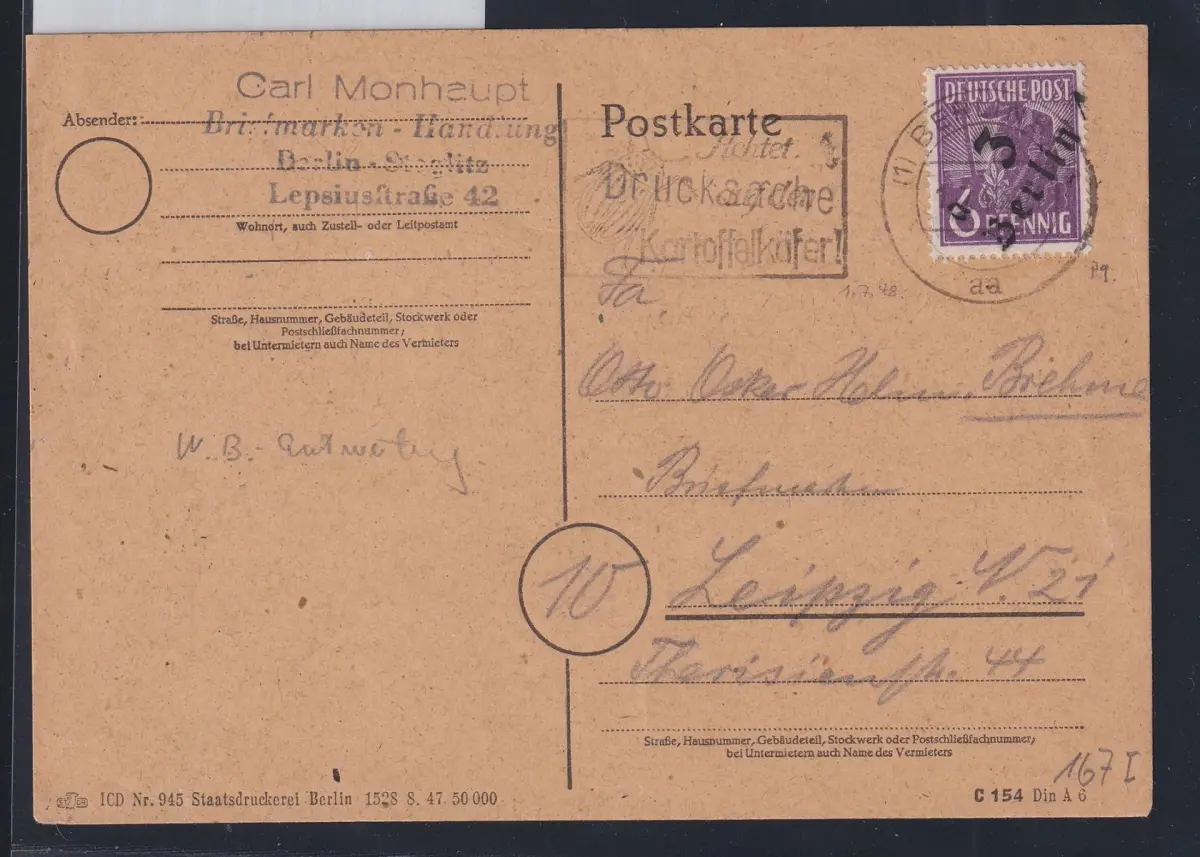 Carl Monhaupt
Absender:
Briefmarken - Handlung
Berlin - Steglitz
Lepsiusstraße 42
Wohnort, auch Zustell- oder Leitpostamt
Straße, Hausnummer, Gebäudeteil, Stockwerk oder
Postschließfachnummer;
bei Untermietern auch Name des Vermieters
Postkarte
Achtet
Drucksache
auf den
Kartoffelkäfer!
DEUTSCHE POST
3
Berlin 1
6 PFENNIG
(1) BERLIN
aa
Pg.
1.7.48.
Fa
Otto Oskar Helm. Briehme
Briefmarken
10
Leipzig N. 21
44
Straße, Hausnummer, Gebäudeteil, Stockwerk oder Postschließfachnummer;
bei Untermietern auch Name des Vermieters
167 I
ICD Nr. 945 Staatsdruckerei Berlin 1528 8. 47. 50 000
C 154 Din A 6